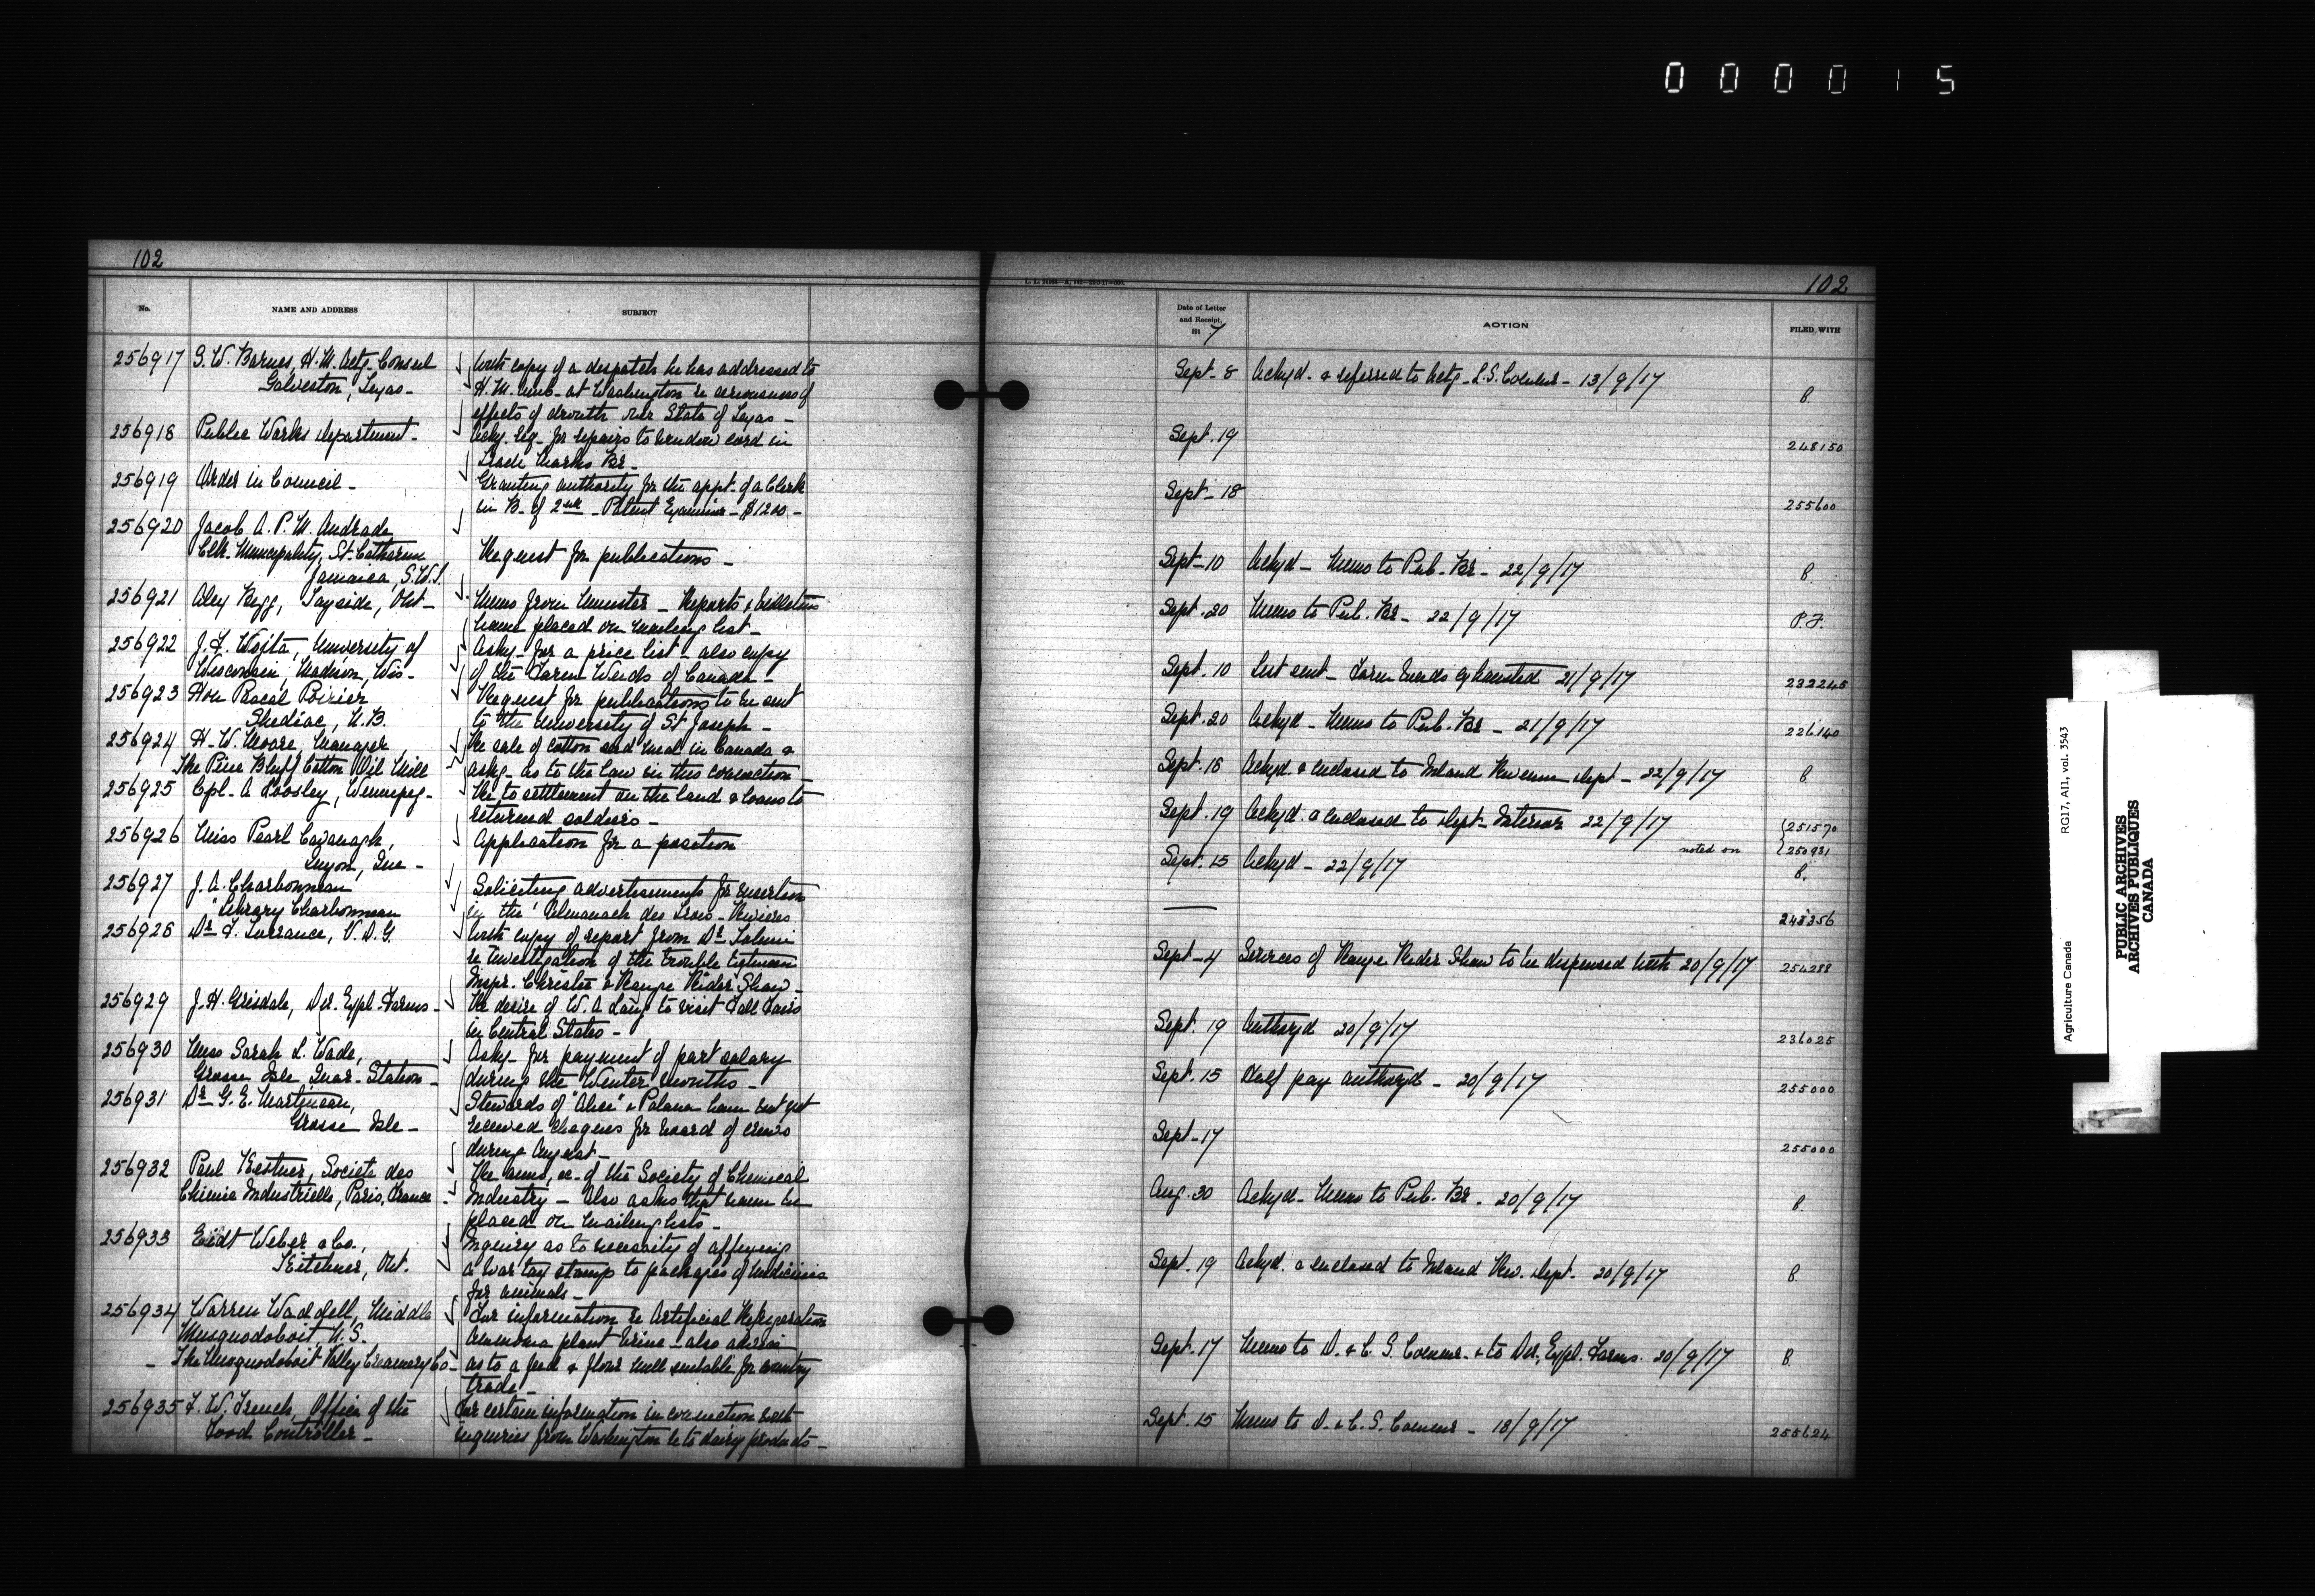 000015
102
No.
NAME AND ADDRESS
SUBJECT
256917 G. W. Barnes, H. M. Actg. Consul
Galveston, Texas -
With copy of a despatch he has addressed to
H. M. Amb- at Washington re seriousness of
effects of drouth over State of Texas -
256918 Public Works Department -
Ackg. Req- for repairs to window cord in
Trade Marks Br -
256919 Order in Council -
Granting authority for the appt- of a Clerk
in B- of 2nd - Patent Examiner - $1200 -
256920 Jacob A. P. M. Andrade
Clk. Municipality, St. Catharine
Jamaica,
Request for publications -
256921 Alex Begg, Tayside, Ont -
Memo from Minister - Reports & bulletins
name placed on mailing list -
256922 J. F. Wojta, University of
Wisconsin, Madison, Wis -
Askg- for a price list - also copy
of the Farm Weeds of Canada -
256923 Hon Pascal Poirier
Shediac, N.B.
Request for publications to be sent
to the University of St Joseph -
256924 H. W. Moore, Manager
The Pine Bluff Cotton Oil Mill
Re sale of cotton seed meal in Canada &
askg- as to the law in this connection -
256925 Cpl- A Loosley, Winnipeg -
Re to settlement on the land & loans to
returned soldiers -
256926 Miss Pearl Cavanagh,
Luyon, Que -
Application for a position
256927 J. A. Charbonneau
Library Charbonneau
Soliciting advertisements for insertion
in the "Almanach des Trois - Rivieres
256928 Dr F. Torrance, V. D. G.
With copy of report from Dr Tolmie
re investigation of the trouble between
Inspr. Christie & Range Rider Shaw -
256929 J. H. Grisdale, Dir. Expl. Farms -
Re desire of W. A Lang to visit Fall Fairs
in Central States -
256930 Miss Sarah L. Wade,
Grosse Isle Quar- Station -
Askg- for payment of part salary
during the Winter months -
256931 Dr G. E. Martineau,
Grosse Isle -
Stewards of "Alice" & Polana have not yet
received cheques for board of crews
during August -
256932 Paul Kestner, Societe des
Chimie Industrielle, Paris, France
Re aims, &c- of the Society of Chemical
Industry - Also asks that name be
placed on mailing lists -
256933 Eidt Weber & Co.,
Kitchener, Ont.
Inquiry as to necessity of affixing
a war tax stamp to packages of medicines
for animals -
256934 Warren Waddell, Middle
Musquodoboit, N.S.
- The Musquodoboit Valley Creamery Co -
For information re Artificial Refrigeration
Ammonia plant brine - also advice
as to a feed & flour mill suitable for country
trade -
256935 F. W. French, Office of the
Food Controller -
For certain information in connection with
inquiries from Washington re to dairy products -
102
Date of Letter
and Receipt,
191 7
ACTION
FILED WITH
Sept- 8 Ackgd. & referred to Actg- L. S. Commr - 13/9/17 B.
Sept. 19 248150
Sept- 18 255600
Sept- 10 Ackgd - Memo to Pub. Br - 22/9/17 B.
Sept. 20 Memo to Pub. Br - 22/9/17 P.F.
Sept. 10 List sent - Farm Weeds exhausted 21/9/17 232245
Sept. 20 Ackgd - Memo to Pub. Br - 21/9/17 226140
Sept. 15 Ackgd & enclosed to Inland Revenue Dept - 22/9/17 B
Sept. 19 Ackgd. & enclosed to Dept- Interior 22/9/17 251570
noted on 250931
Sept. 15 Ackgd - 22/9/17 B.
— 243356
Sept- 4 Services of Range Rider Shaw to be dispensed with 20/9/17 254288
Sept. 19 Authzgd 20/9/17 236025
Sept. 15 Half pay authzgd - 20/9/17 255000
Sept- 17 255000
Aug. 30 Ackgd - Memo to Pub. Br. - 20/9/17 B.
Sept. 19 Ackgd. & enclosed to Inland Rev. Dept. 20/9/17 B.
Sept. 17 Memo to D. & C. S. Commr. & to Dir. Expl. Farms. 20/9/17 B.
Sept. 15 Memo to D. & C. S. Commr - 18/9/17 255624
Agriculture Canada
RG17, AII, vol. 3543
PUBLIC ARCHIVES
ARCHIVES PUBLIQUES
CANADA